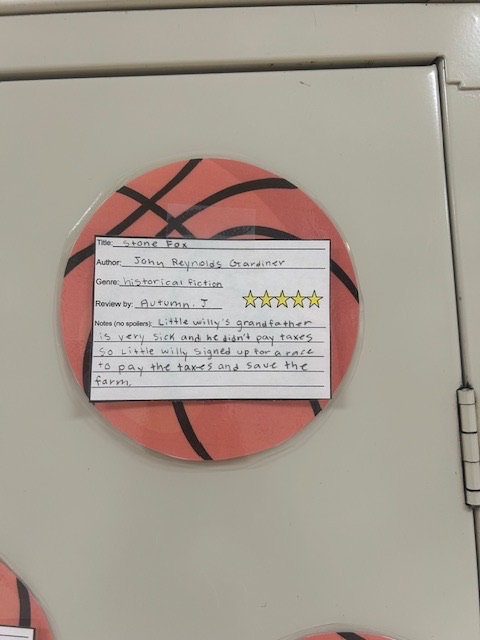 Title: Stone Fox
Author: John Reynolds Gardiner
Genre: historical fiction
Review by: Autumn. J
Notes (no spoilers): Little willy's grandfather
is very sick and he didn't pay taxes
so Little willy signed up for a race
to pay the taxes and save the
farm.